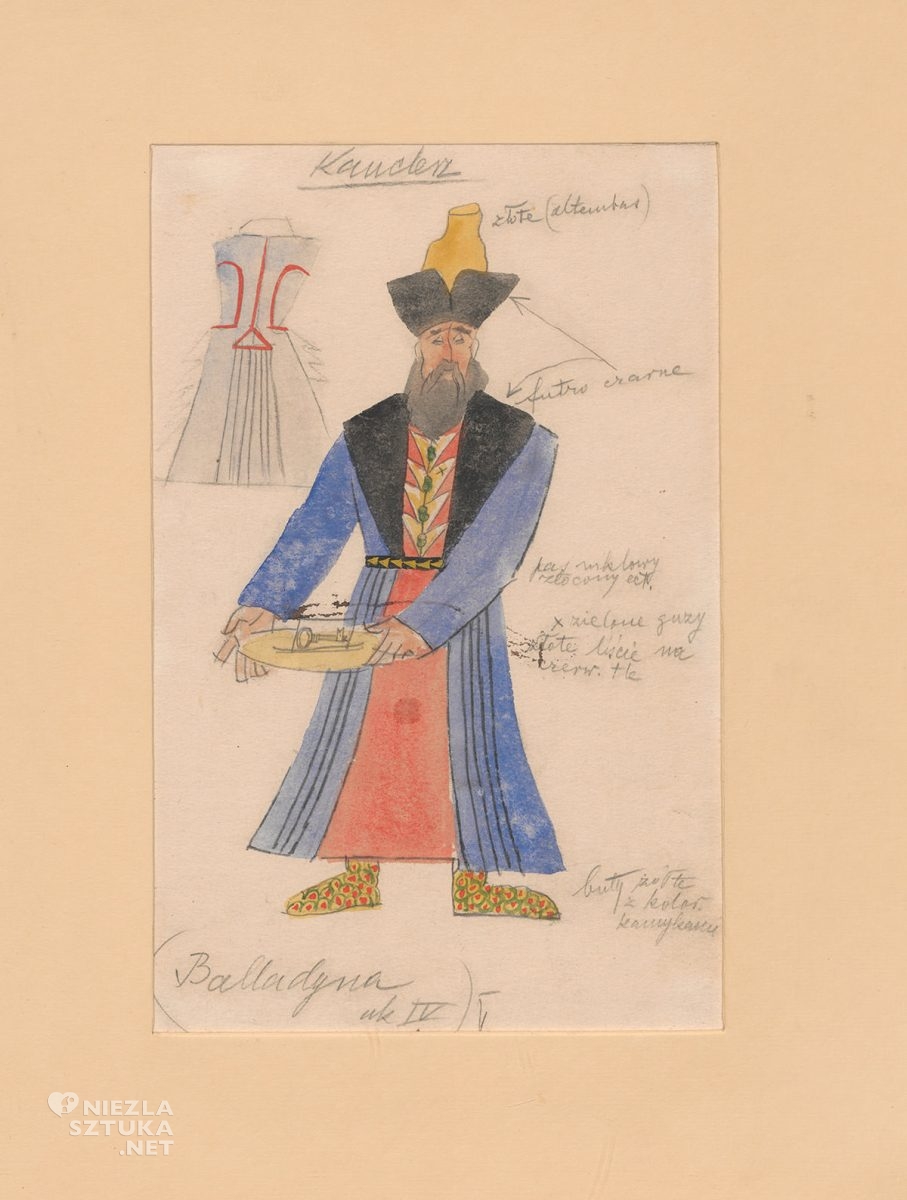 Kanclerz
złote (altembas)
futro czarne
pas
złocony
x zielone guzy
złote liście na
czerw. tle
buty żółte
z kolor.
kamykami
(Balladyna
ak IV) V
NIEZLA
SZTUKA
.NET